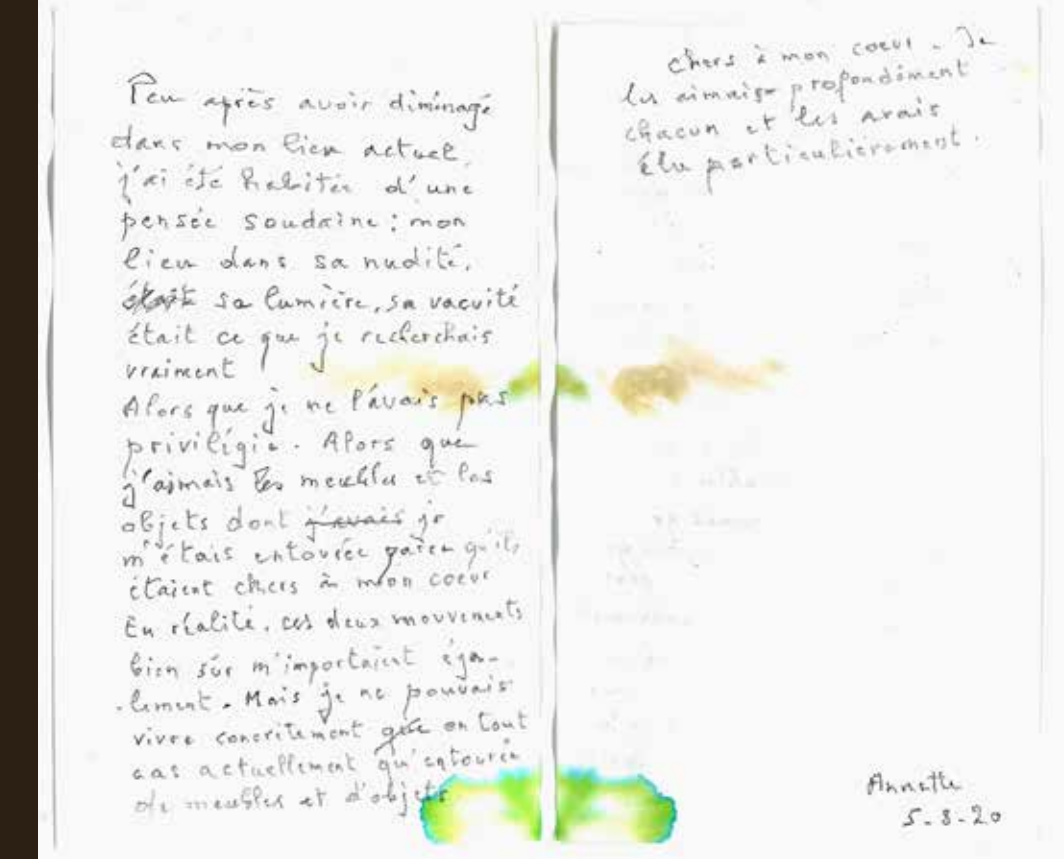 Peu après avoir diminagé
dans mon lieu actuel,
j'ai été habitée d'une
pensée soudaine : mon
lieu dans sa nudité,
était sa lumière, sa vacuité
était ce que je recherchais
vraiment
Alors que je ne l'avais pas
privilégié. Alors que
j'aimais les meubles et les
objets dont j'avais je
m'étais entourée parce qu'ils
étaient chers à mon coeur
En réalité, ces deux mouvements
bien sûr m'importaient éga-
lement. Mais je ne pouvais
vivre concrètement que en tout
cas actuellement qu'entourée
de meubles et d'objets
chers à mon coeur. Je
les aimais profondément
chacun et les avais
élu particulièrement.
Annette
5-8-20